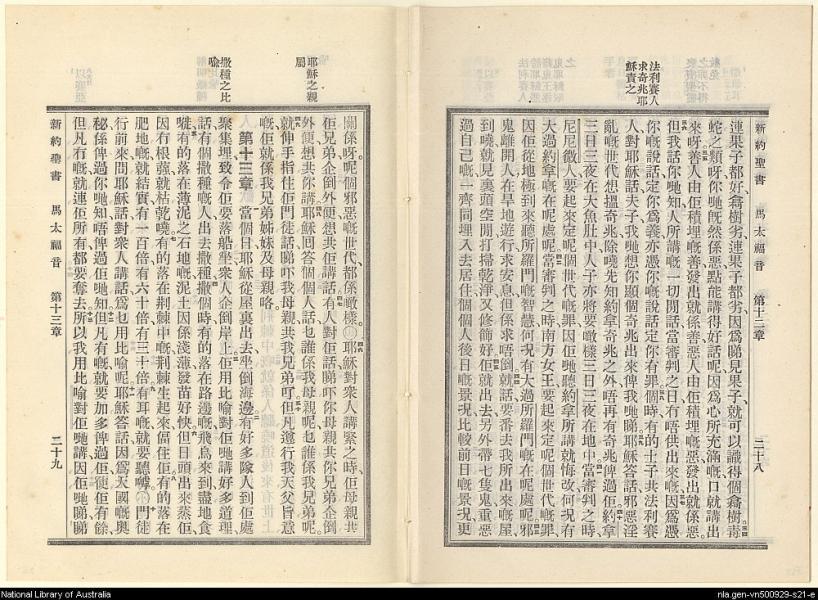 新約聖書 馬太福音 第十二章 二十八
法利賽人
求奇兆耶
穌責之
連果子都好、樹劣、連果子都劣、因爲睇見果子、就可以識得個樹。毒
蛇之類呀、你哋既然係惡、點能講得好話呢、因爲心所充滿嘅、口就講出
來呀。善人由佢積埋嘅善發出就係善、惡人由佢積埋嘅惡發出就係惡。
但我話你哋知、人所講嘅一切閒話、當審判之日、有唔供出來嘅、因爲憑
你嘅說話定你爲義、亦憑你嘅說話定你有罪。個時有的士子共法利賽
人對耶穌話、夫子、我哋想你顯個奇兆出來俾我哋睇。耶穌答話、邪惡淫
亂嘅世代想搵奇兆、除嘵先知約拿奇兆之外、唔再有奇兆俾過佢、約拿
三日三夜在大魚肚中、人子亦將要噉樣三日三夜在地中。當審判之時、
尼尼微人要起來定呢個世代嘅罪、因佢哋聽約拿所講就悔改、何況有
大過約拿嘅在呢處呢。當審判之時、南方女王要起來定呢個世代嘅罪、
因佢從地極到來聽所羅門嘅智慧、何況有大過所羅門嘅在呢處呢。邪
鬼離開人、在旱地遊行求安息、但係求唔倒、就話要番去我所出來嘅屋、
到嘵就見裏頭空閒、打掃乾淨、又修飾好、佢就出去另外帶七隻鬼、重惡
過自己嘅一齊同埋入去居住、個個人後日嘅景況、比較前日嘅景況更
耶穌之親
屬
撒種之比
喻
關係呀、呢個邪惡嘅世代、都係噉樣。○耶穌對衆人講緊之時、佢母親共
佢兄弟企倒外便、想共佢講話。有人對佢話、睇吓你母親共你兄弟企倒
外便、想共你講。耶穌回答個個人話、乜誰係我母親呢、乜誰係我兄弟呢。
就伸手指住佢門徒話、睇吓我母親共我兄弟吖、但凡遵行我天父旨意
嘅、佢就係我兄弟姊妹及母親咯。
第十三章 當個日耶穌從屋裏出去、坐倒海邊、有好多隊人到佢處
聚集埋、致令佢要落船坐、衆人企倒岸上、佢用比喻對佢哋講好多道理、
話、有個撒種嘅人出去撒種、撒個時、有的落在路邊嘅、飛鳥來到盡地食
嘵、有的落在薄泥之石地嘅、泥土因係淺薄、發苗好快、但日頭出來蒸佢、
因冇根蔃、就枯乾嘵、有的落在荆棘中嘅、荆棘生起來、侷住佢、有的落在
肥地嘅、就結實、有一百倍、有六十倍、有三十倍、有耳嘅就要聽嘑。○門徒
行前來問耶穌話、對衆人講話、爲乜用比喻呢。耶穌答話、因爲天國嘅奧
秘係俾過你哋知、唔俾過佢哋知、但凡有嘅就要加多俾過佢、使佢有餘、
但凡冇嘅、就連佢所有都要奪去、所以我用比喻對佢哋講、因佢哋睇睇
新約聖書 馬太福音 第十三章 二十九
National Library of Australia
nla.gen-vn500929-s21-e